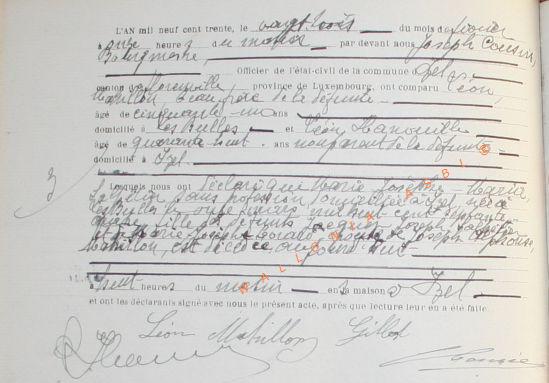 L'AN mil neuf cent trente, le vingt trois du mois de février
à onze heures du matin par devant nous Joseph Cousin,
Bourgmestre,
Officier de l'état-civil de la commune d'Izel,
canton de Florenville, province de Luxembourg, ont comparu Léon,
Mabillon, beau frère de la défunte
âgé de cinquante un ans
domicilié à les Bulles et Léon Hanouille
âgé de quarante huit ans non parent de la défunte
domicilié à Izel.
lesquels nous ont déclaré que Marie Josèphe Maria
sans profession domiciliée à Izel née à
les Bulles le onze mars mil huit cent septante
fille des défunts Joseph
et Marie Joseph épouse de Joseph Alphonse
Mabillon, est décédée aujourd'hui
à huit heures du matin en sa maison à Izel
et ont les déclarants signé avec nous le présent acte, après que lecture leur en a été faite
Léon Mabillon Gillet
WALLONIA ASBL ©